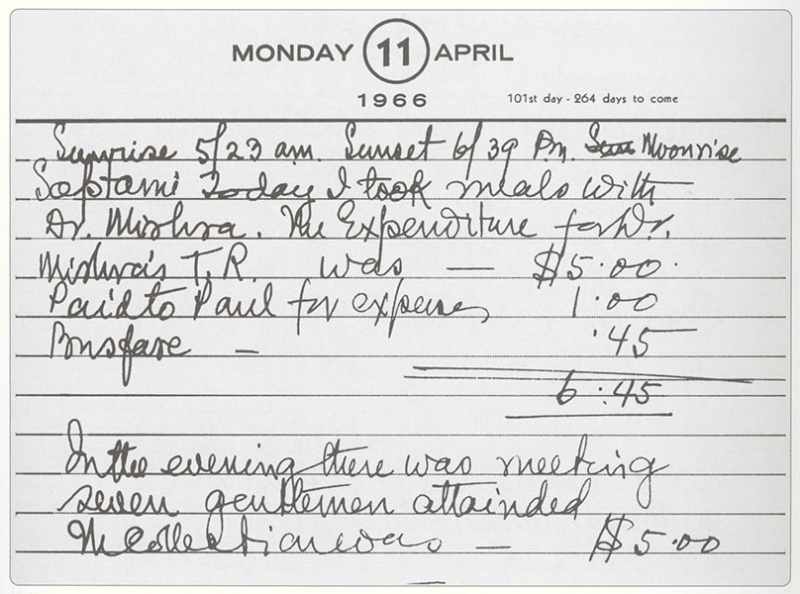 MONDAY 11 APRIL
1966 101st day - 264 days to come
Sunrise 5/23 am. Sunset 6/39 Pm. Moonrise
Saptami Today I took meals with
Dr. Mishra. The Expenditure for Dr.
Mishra's T.R. was — $5.00.
Paid to Paul for expenses 1.00
Busfare — .45
6.45
In the evening there was meeting
seven gentlemen attainded
The Collection was — $5.00